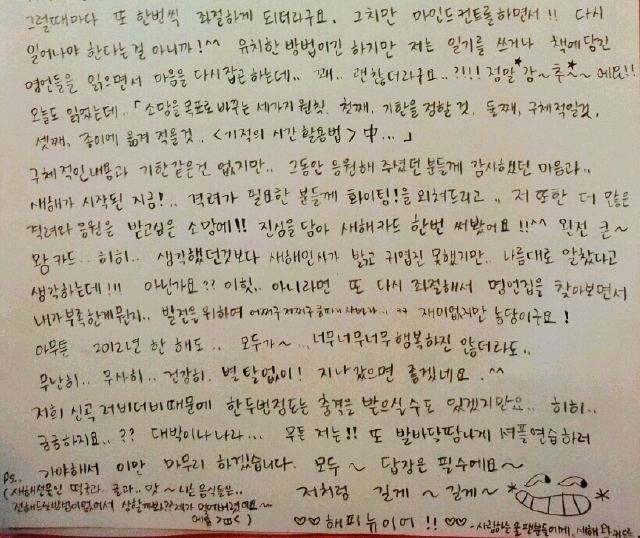 그럴때마다 또 한번씩 좌절하게 되더라구요. 그치만 마인드컨트롤하면서 !! 다시
일어나야 한다는걸 아니까!^^ 유치한 방법이긴 하지만 저는 일기를 쓰거나 책에담긴
명언들을 읽으면서 마음을 다시잡곤하는데.. 꽤.. 괜찮더라구요..?!!! 정말 강~추~ 에요!!
오늘도 읽었는데..「소망을 목표로 바꾸는 세가지 원칙. 첫째, 기한을 정할 것. 둘째, 구체적일것.
셋째, 종이에 옮겨 적을것.. <기적의 시간 활용법> 中...」
구체적인내용과 기한같은건 없지만.. 그동안 응원해 주셨던 분들께 감사했던 마음과..
새해가 시작된 지금!.. 격려가 필요한 분들께 화이팅!을 외쳐드리고.. 저 또한 더 많은
격려와 응원을 받고싶은 소망에!! 진심을 담아 새해카드 한번 써봤어요!!^^ 완전 큰~
왕 카드.. 히히.. 생각했던것보다 새해인사가 밝고 귀엽진 못했지만.. 나름대로 알찼다고
생각하는데!!! 아닌가요?? 이힛.. 아니라면 또 다시 좌절해서 명언집을 찾아보면서
내가부족한게뭔지.. 발전을위하여 어쩌구저쩌구 ㅋㅋ 재미없지만 농담이구요!
아무튼 2012년 한 해도.. 모두가~ 너무너무너무 행복하진 않더라도..
무난히.. 무사히.. 건강히. 별 탈없이! 지나갔으면 좋겠네요.^^
저희 신곡 러비더비때문에 한두번정도는 충격을 받으실수도 있겠지만요.. 히히..
궁금하지요..?? 대박이나 나라... 무튼 저는!! 또 발바닥땀나게 셔플연습하러
가야해서 이만 마무리 하겠습니다. 모두~ 답장은 필수에요~
저처럼 길게~길게~
Ps..
(새해선물인 떡국과.. 맛~나는음식들은..
전해드릴방법이없어서 상할까봐 제가 먹어버렸어요~
♡♡ 해피뉴이어 !! ♡♡ - 사랑하는 울 팬분들에게, 새해